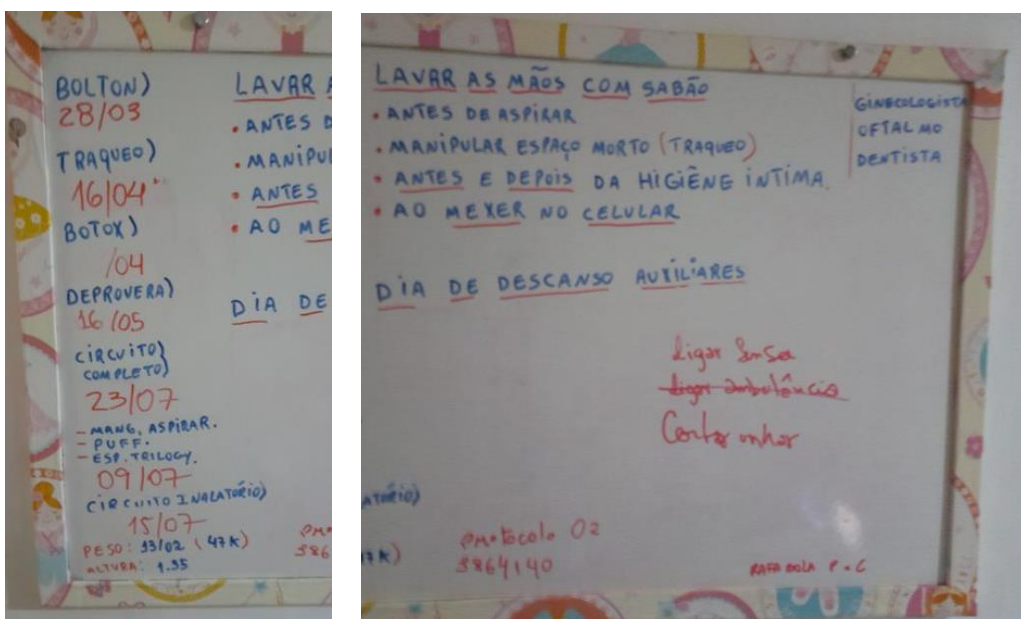 BOLTON)
28/03
TRAQUEO)
16/04
BOTOX)
/04
DEPROVERA)
16/05
CIRCUITO)
COMPLETO)
23/07
- MANG. ASPIRAR.
- PUFF.
- ESP. TRILOGY.
09/07
CIRCUITO INALATÓRIO)
15/07
PESO: 13/02 (47K)
ALTURA: 1.35
LAVAR A
• ANTES D
• MANIPUL
• ANTES
• AO ME
DIA DE
386
LAVAR AS MÃOS COM SABÃO
• ANTES DE ASPIRAR
• MANIPULAR ESPAÇO MORTO (TRAQUEO)
• ANTES E DEPOIS DA HIGIÊNE INTIMA.
• AO MEXER NO CELULAR
DIA DE DESCANSO AUXILIARES
GINECOLOGISTA
OFTALMO
DENTISTA
ligar
ligar ambulância
Cortar unhas
ATÓRIO)
47K)
Protocolo O2
3864140
RAFA BOLA P.C